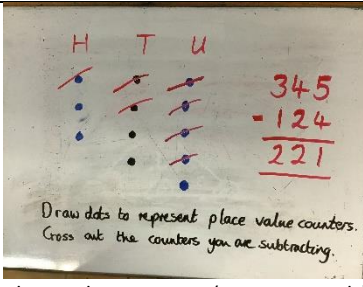 H T U
345
- 124
221
Draw dots to represent place value counters.
Cross out the counters you are subtracting.